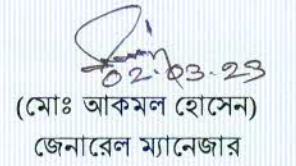 02.03.23
(মোঃ আকমল হোসেন)
জেনারেল ম্যানেজার